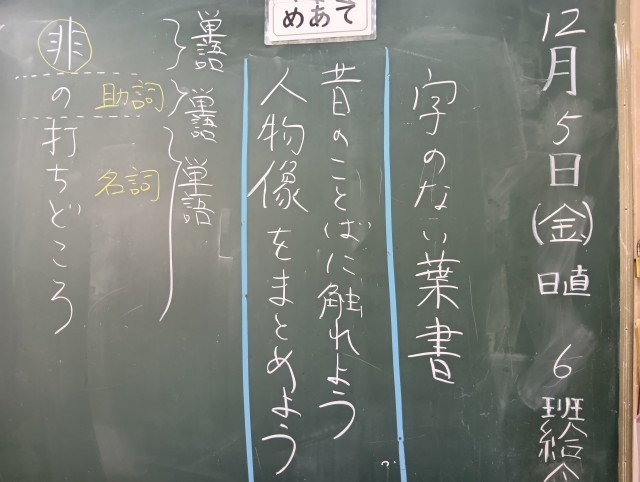 12月5日(金) 日直 6班給食
字のない葉書
めあて
昔のことばに触れよう
人物像をまとめよう
単語
単語
単語
助詞
名詞
非の打ちどころ